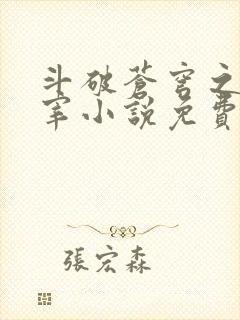 斗破蒼穹之
宰小說免費
張宏森